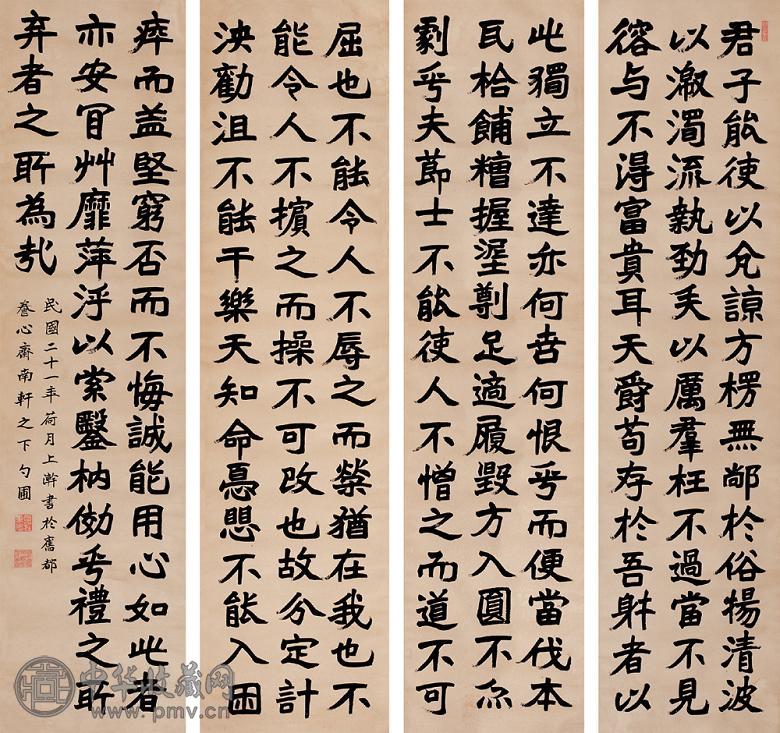 君子能使以諒方楞無於俗揚清波
以激濁流執勁矢以厲羣枉不過當不見
与不得富貴耳天爵苟存於吾躰者以
此獨立不達亦何苦何恨乎而便當伐本
瓦枱餔糟握埿剸足適履毀方入圓不亦
劇乎夫節士不能使人不憎之而道不可
屈也不能令人不辱之而榮猶在我也不
能令人不擯之而操不可改也故分定計
決勸沮不能干樂天知命憂懼不能入困
瘁而益堅窮否而不悔誠能用心如此者
亦安肎艸靡萍浮以索鑿枘効乎禮之所
弃者之所為哉
民國二十一年荷月上澣書於舊都
養心齋南軒之下勺圃
中华收藏网
www.pmv.cn